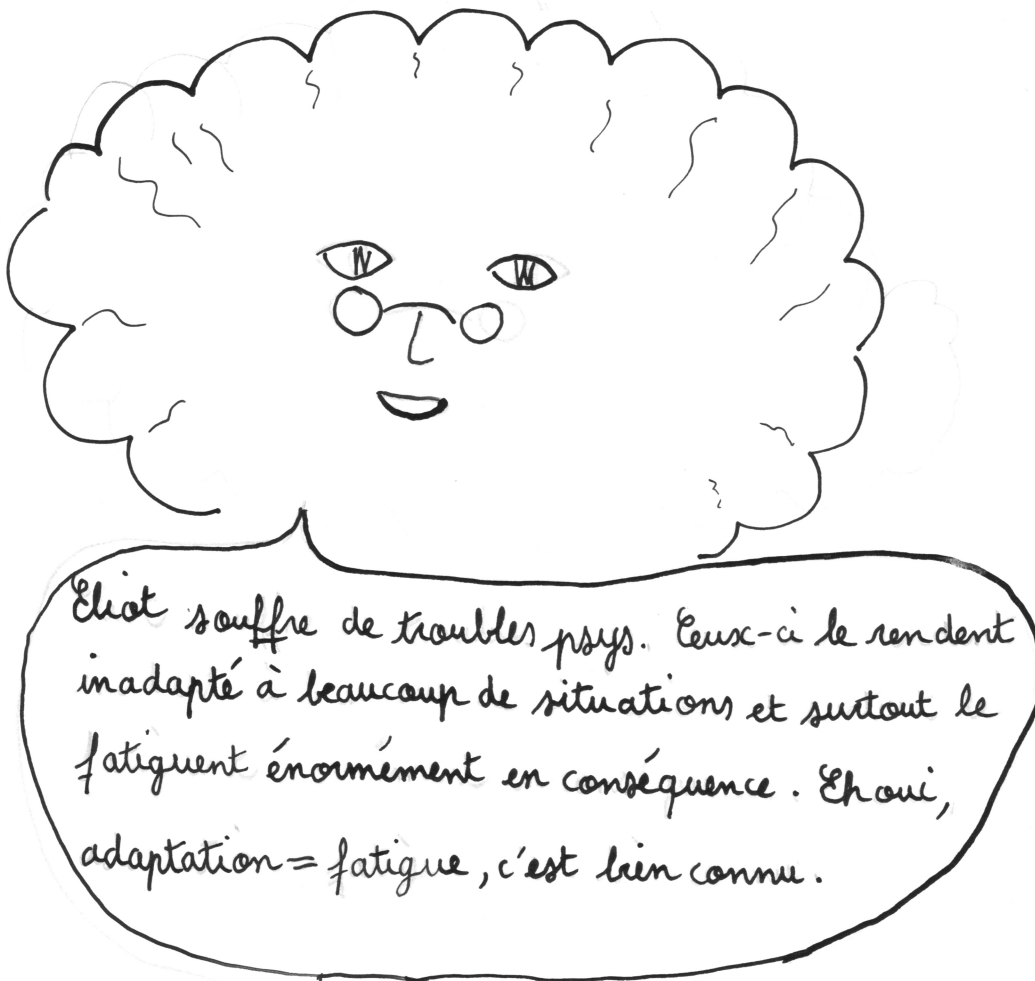 Eliot souffre de troubles psys. Ceux-ci le rendent
inadapté à beaucoup de situations et surtout le
fatiguent énormément en conséquence. Eh oui,
adaptation = fatigue, c'est bien connu.